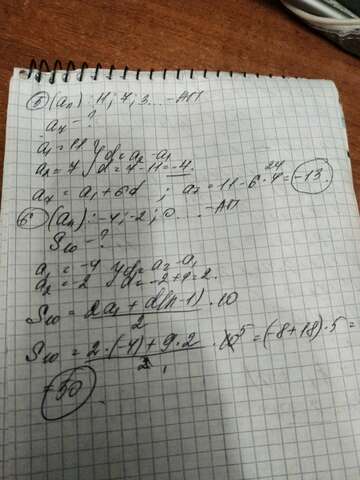 ⑤ (aₙ): 11; 7; 3... -АП
a₇ - ?
a₁ = 11 } d = a₂ - a₁
a₂ = 7 } d = 7-11 = -4
a₇ = a₁ + 6d ; a₇ = 11 - 6 · 4 = -13
24
⑥ (aₙ): -4; -2; 0 ... -АП
S₁₀ - ?
a₁ = -4 } d = a₂ - a₁
a₂ = -2 } d = -2+4 = 2.
S₁₀ = (2a₁ + d(n-1))/2 · 10
S₁₀ = (2·(-4) + 9·2)/2 · 10 ⁵ = (-8+18)·5 =
1
= 50